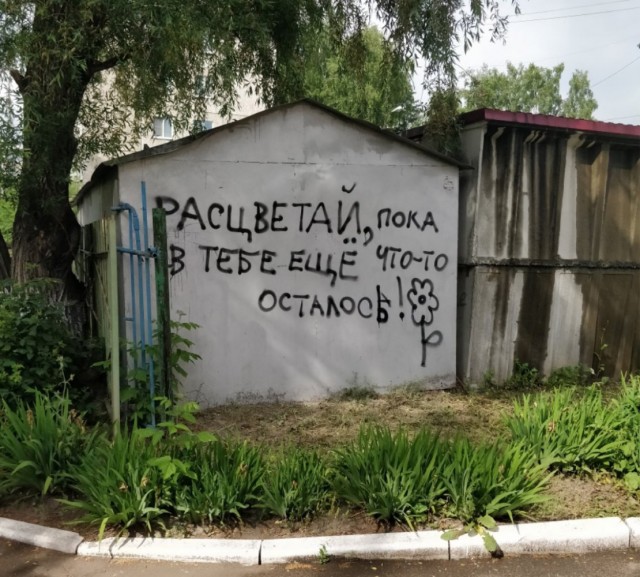 РАСЦВЕТАЙ, ПОКА
В ТЕБЕ ЕЩЁ ЧТО-ТО
ОСТАЛОСЬ!